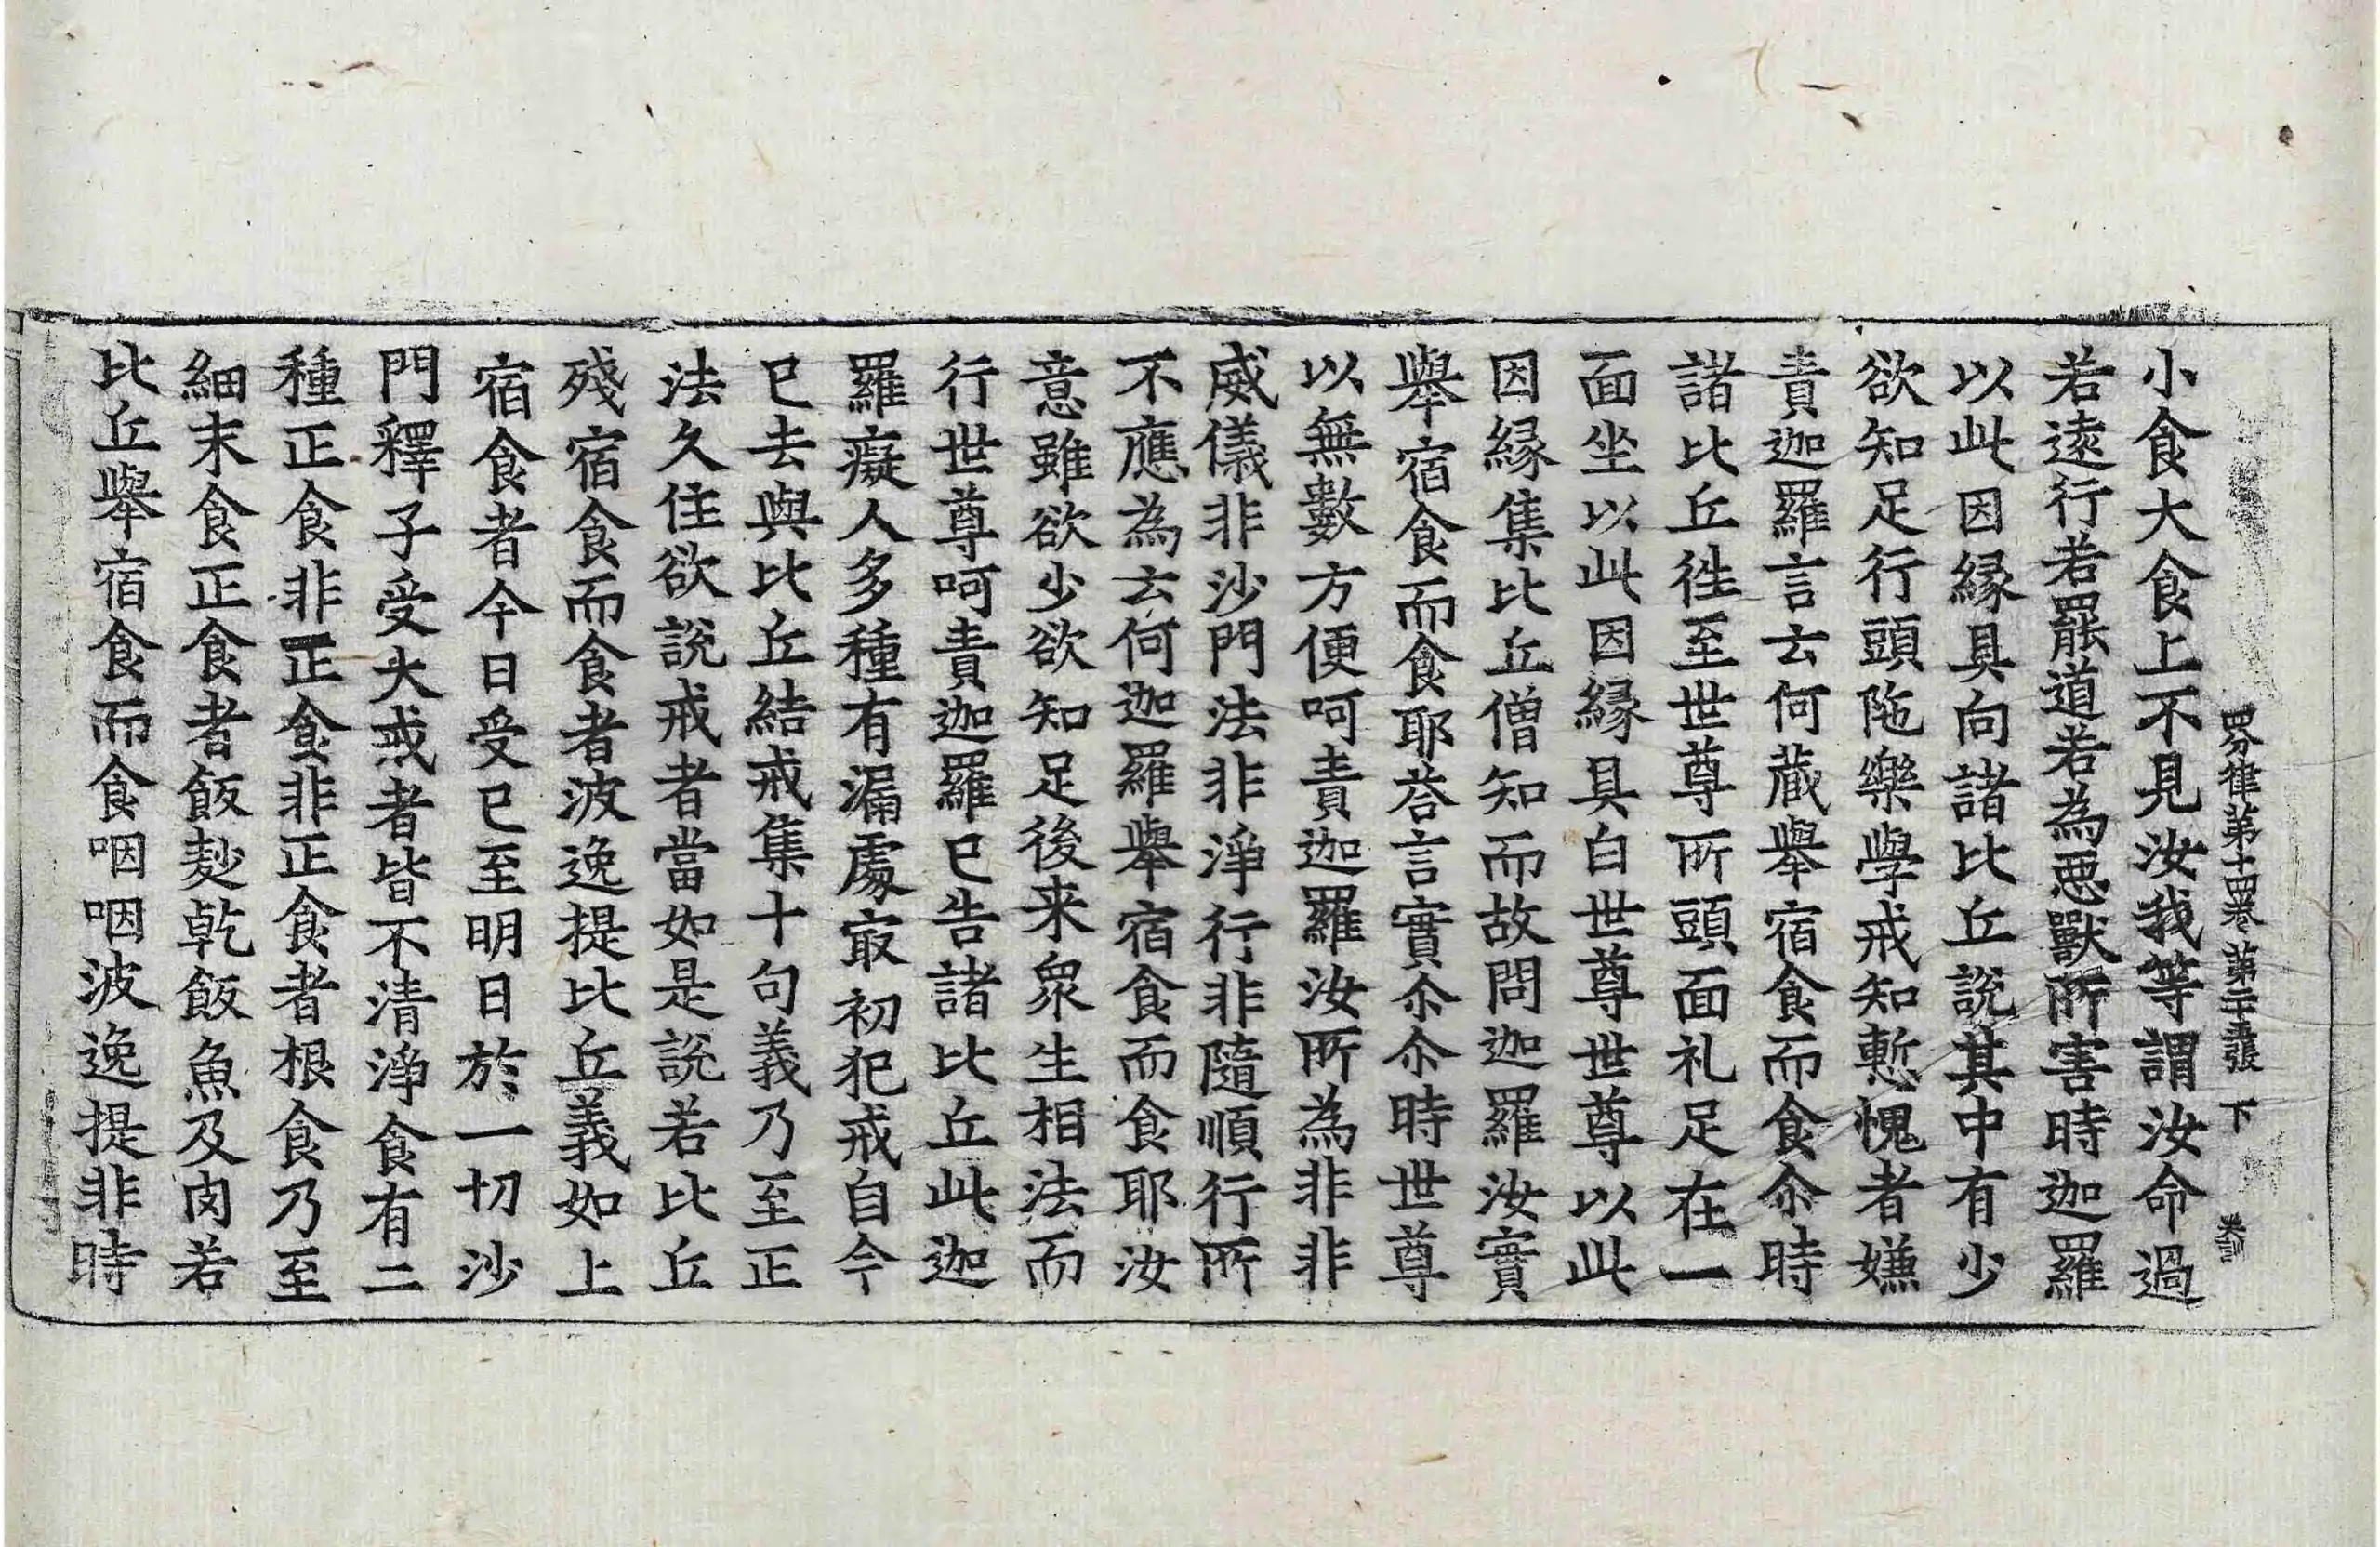 四分律第十四卷 第二十五張 下
小食大食上不見汝我等謂汝命過
若遠行若罷道若為惡獸所害時迦羅
以此因緣具向諸比丘說其中有少
欲知足行頭陁樂學戒知慙愧者嫌
責迦羅言云何藏舉宿食而食尒時
諸比丘徃至世尊所頭面礼足在一
面坐以此因緣具白世尊世尊以此
因緣集比丘僧知而故問迦羅汝實
舉宿食而食耶荅言實尒尒時世尊
以無數方便呵責迦羅汝所為非非
威儀非沙門法非淨行非隨順行所
不應為云何迦羅舉宿食而食耶汝
意雖欲少欲知足後来衆生相法而
行世尊呵責迦羅已告諸比丘此迦
羅癡人多種有漏處㝡初犯戒自今
已去與比丘結戒集十句義乃至正
法久住欲說戒者當如是說若比丘
殘宿食而食者波逸提比丘義如上
宿食者今日受已至明日於一切沙
門釋子受大戒者皆不清淨食有二
種正食非正食非正食者根食乃至
細末食正食者飯麨乾飯魚及肉若
比丘舉宿食而食咽咽波逸提非時